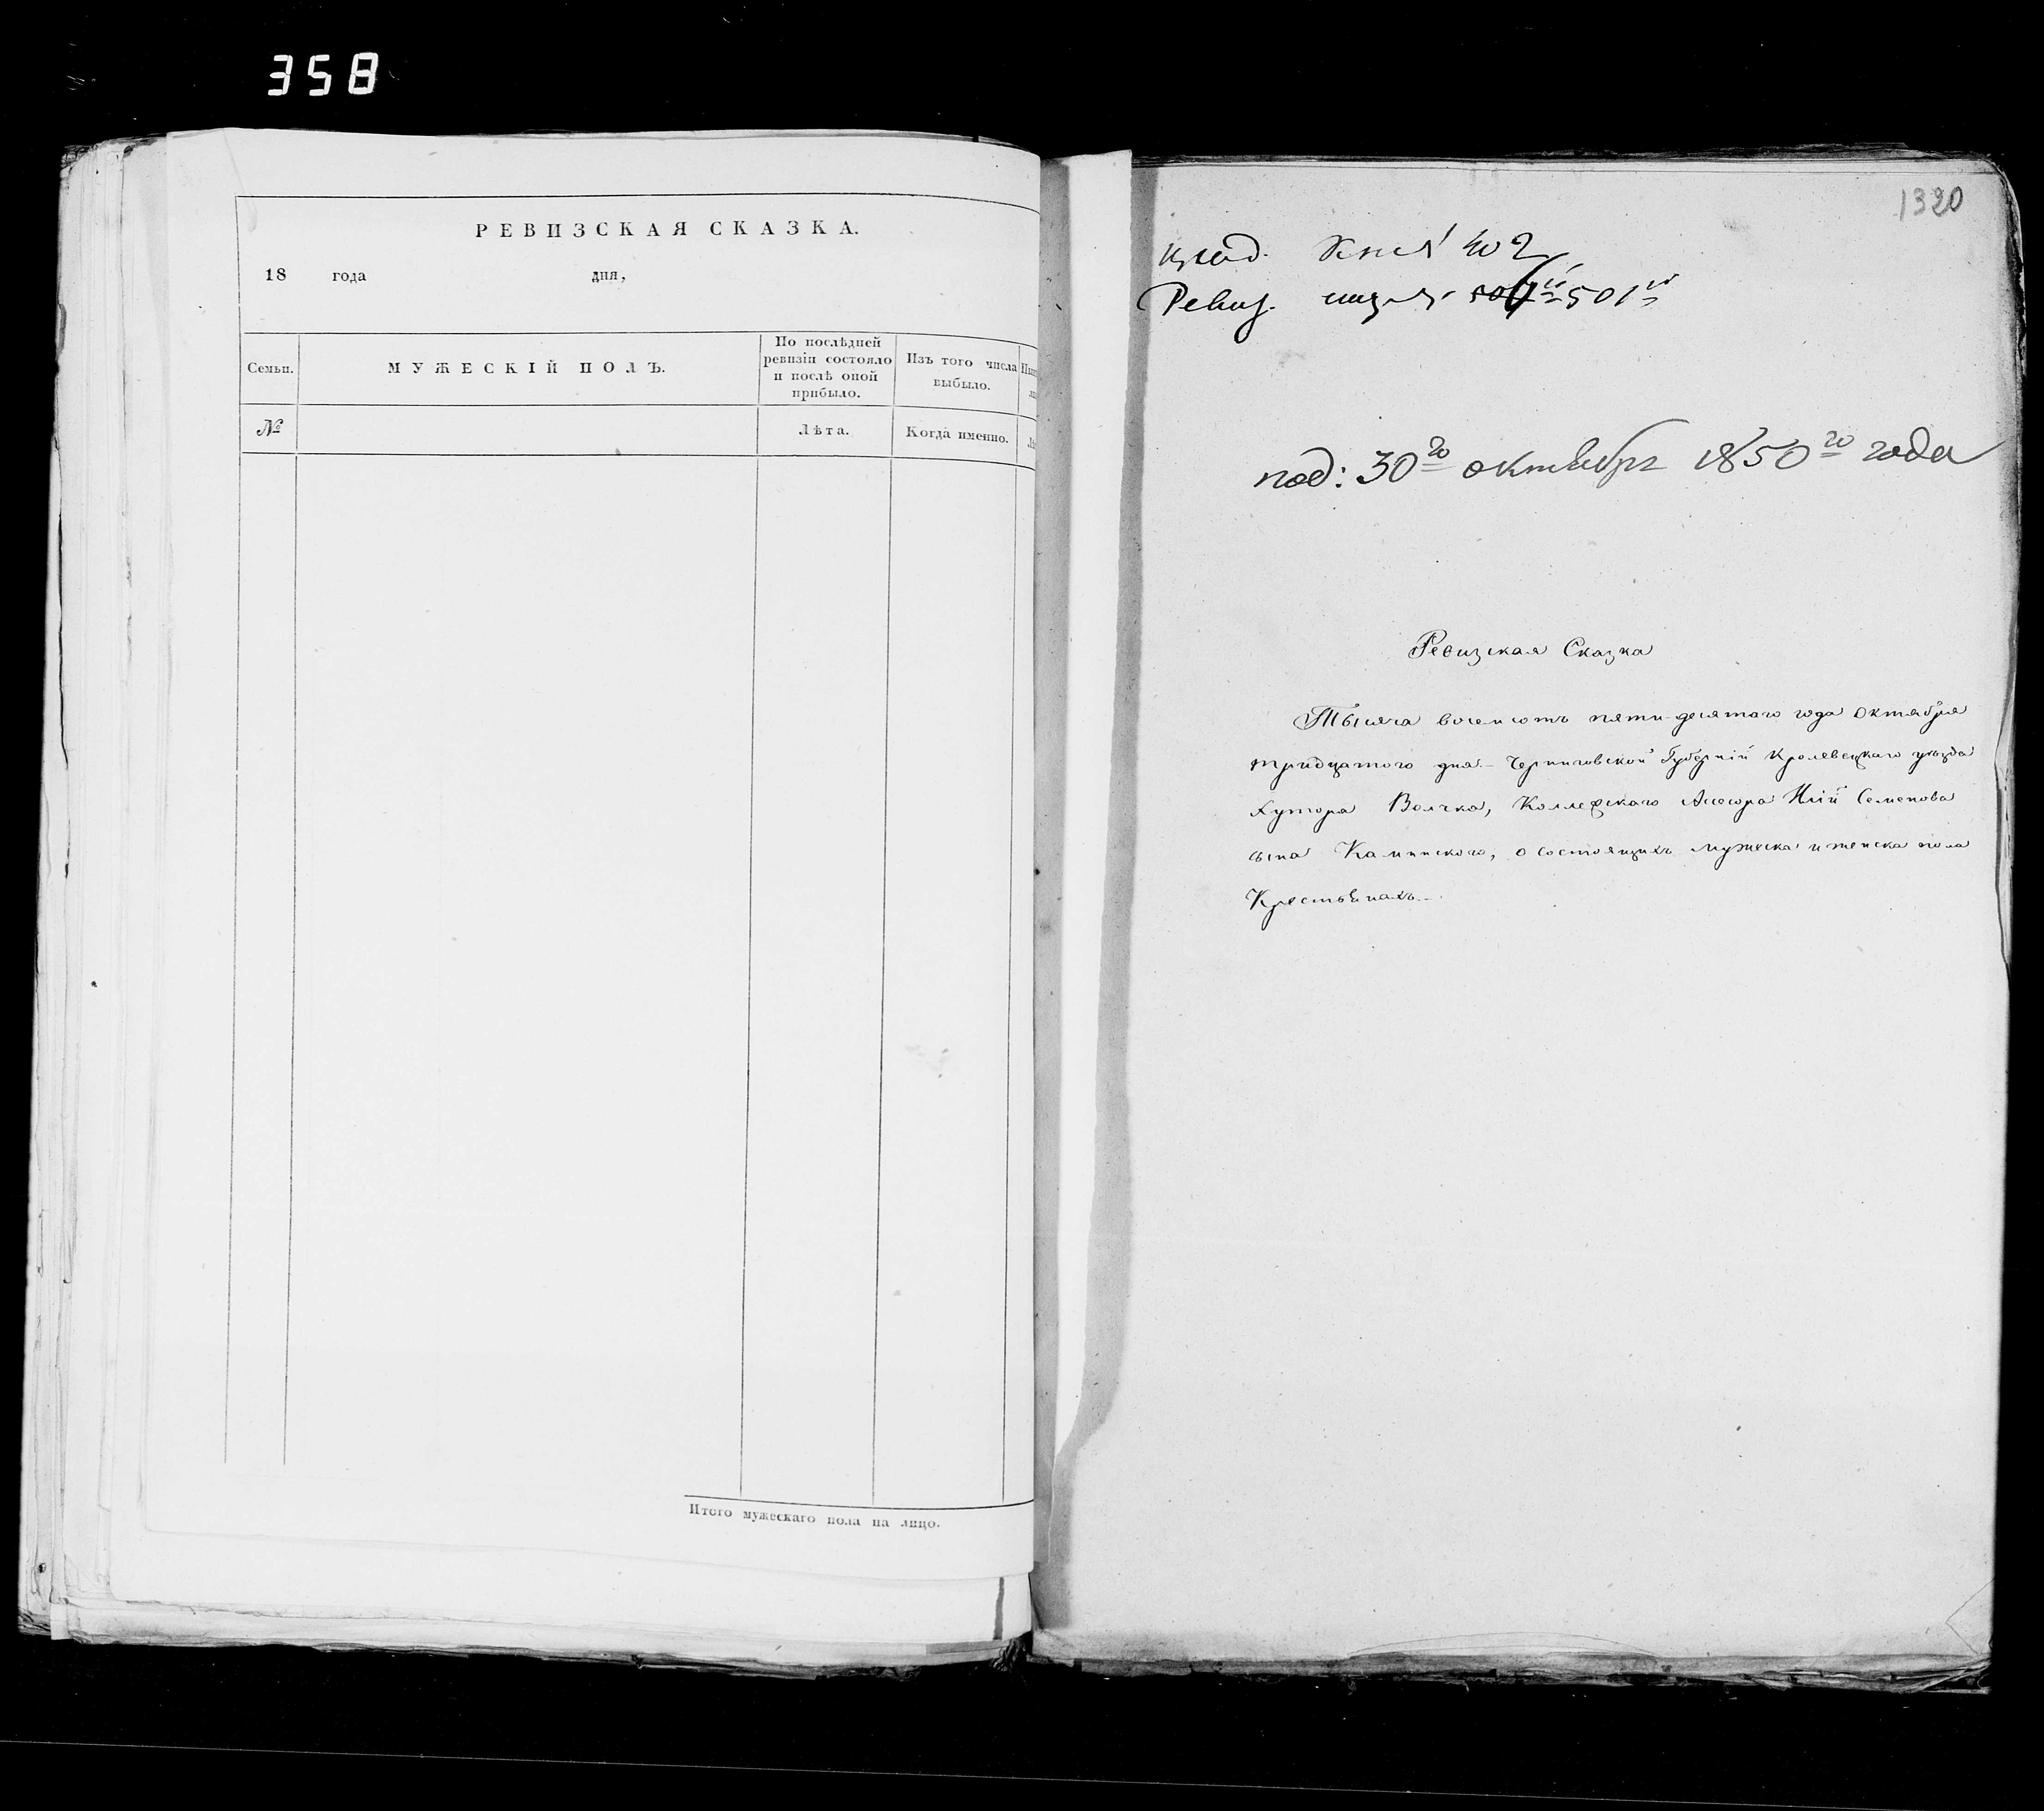 358
РЕВИЗСКАЯ СКАЗКА.
18 года дня,
Семьи.
МУЖЕСКІЙ ПОЛЪ.
По послѣдней
ревизіи состояло
и послѣ оной
прибыло.
Изъ того числа
выбыло.
№
Лѣта.
Когда именно.
Итого мужескаго пола на лицо.
1320
402
Ревиз. 501
под: 30го октября 1850го года
Ревизская Сказка
Тысяча восемсотъ пяти-десятаго года Октября
тридцатого дня.– Черниговской Губерніи Кролевецкаго уезда
Хутора Волчка, Коллежскаго Асесора Иліи Семенова
сына Каминского, о состоящихъ мужеска и женска пола
Крестьянахъ.–